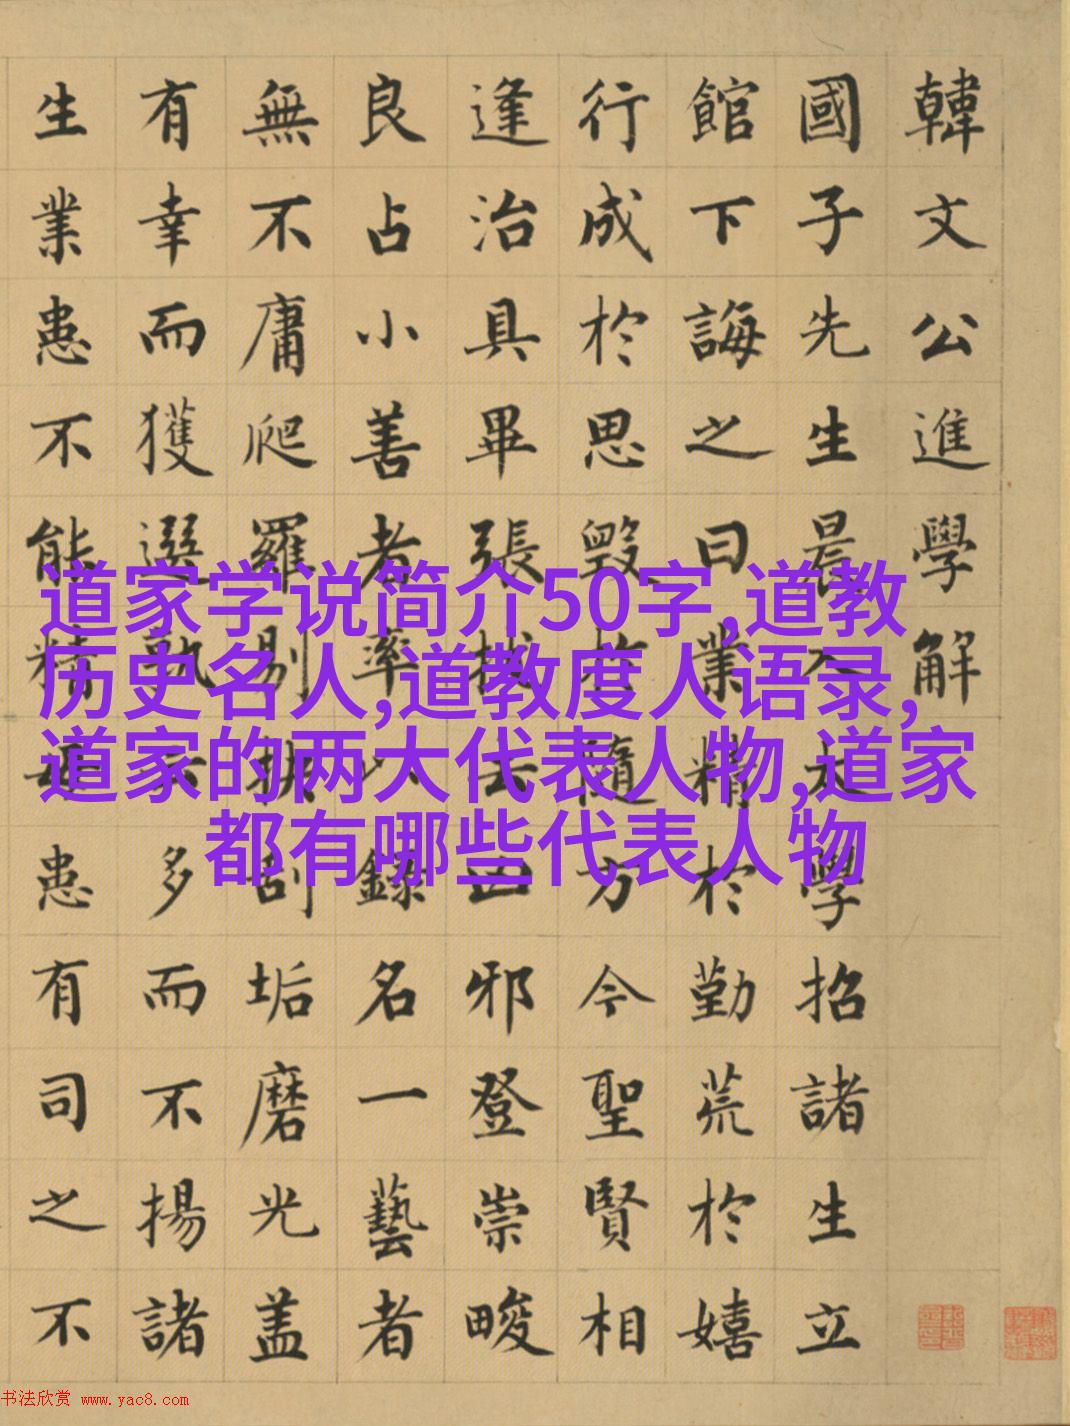 韓文公進學解
國子先生晨入太學招諸生立
館下誨之曰業精於勤荒於嬉
行成於思毀於隨方今聖賢相
逢治具畢張拔去凶邪登崇畯
良占小善者率以錄名一藝者
無不庸爬羅剔抉刮垢磨光盖
有幸而獲選孰云多而不揚諸
生業患不能精毋患有司之不
道家学说简介50字,道教
历史名人,道教度人语录,
道家的两大代表人物,道家
都有哪些代表人物
书法欣赏 www.yac8.com